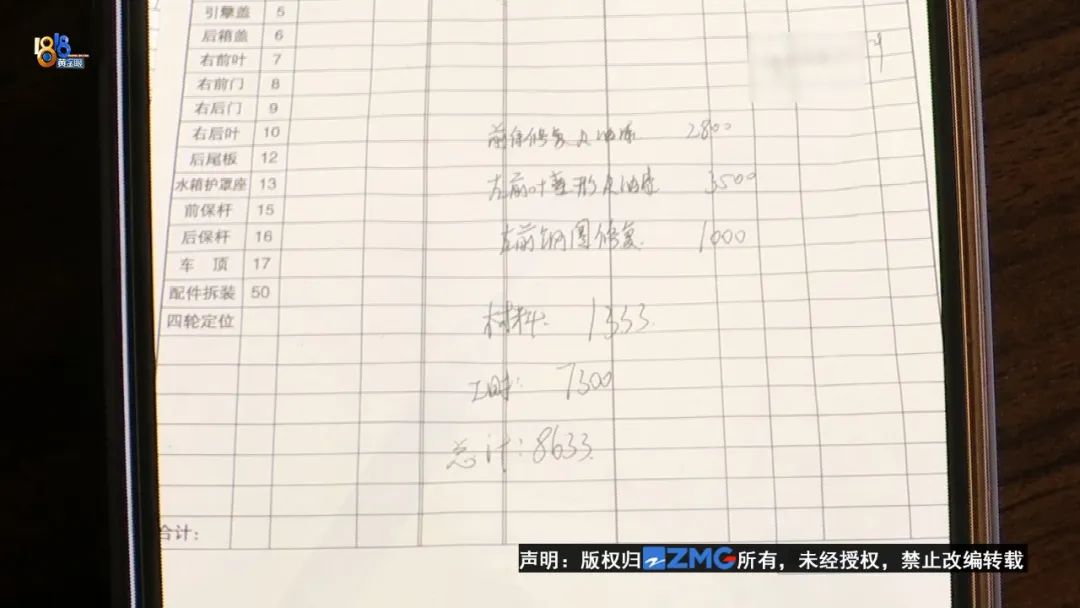 1818
黄金眼
引擎盖 5
后箱盖 6
右前叶 7
右前门 8
右后门 9
右后叶 10 前保修复及油漆 2800
后尾板 12
水箱护罩座 13 左前叶整形及油漆 3500
前保杆 15
后保杆 16 左前钢圈修复 1000
车 顶 17
配件拆装 50
四轮定位 材料: 1333
工时: 7300
总计:8633
合计:
声明：版权归ZMG所有，未经授权，禁止改编转载